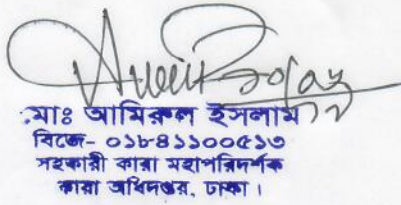 মোঃ আমিরুল ইসলাম
বিজে- ০১৮৪১১০০৫১৩
সহকারী কারা মহাপরিদর্শক
কারা অধিদপ্তর, ঢাকা।